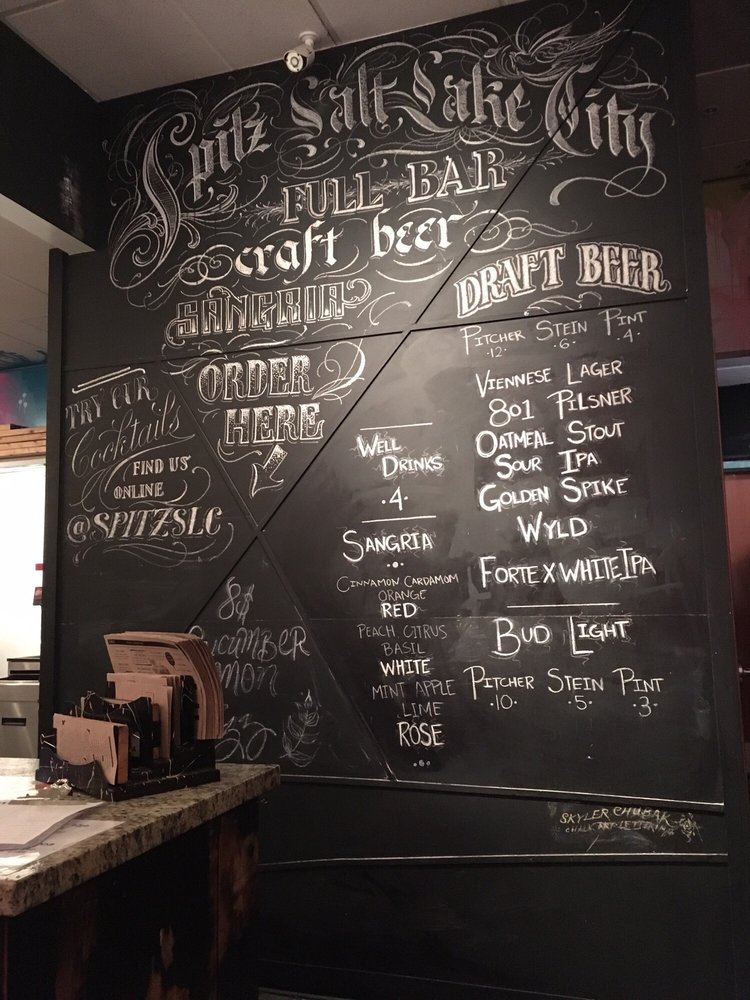 Spitz Salt Lake City
FULL BAR
craft beer
SANGRIA
ORDER
HERE
TRY OUR
Cocktails
FIND US
ONLINE
@SPITZSLC
WELL
DRINKS
·4·
SANGRIA
CINNAMON CARDAMOM
ORANGE
RED
PEACH CITRUS
BASIL
WHITE
MINT APPLE
LIME
ROSE
·6·
DRAFT BEER
PITCHER STEIN PINT
·12· ·6· ·4·
VIENNESE LAGER
801 PILSNER
OATMEAL STOUT
SOUR IPA
GOLDEN SPIKE
WYLD
FORTE X WHITE IPA
BUD LIGHT
PITCHER STEIN PINT
·10· ·5· ·3·
SKYLER CHUBAK
CHALK ART LETTERING